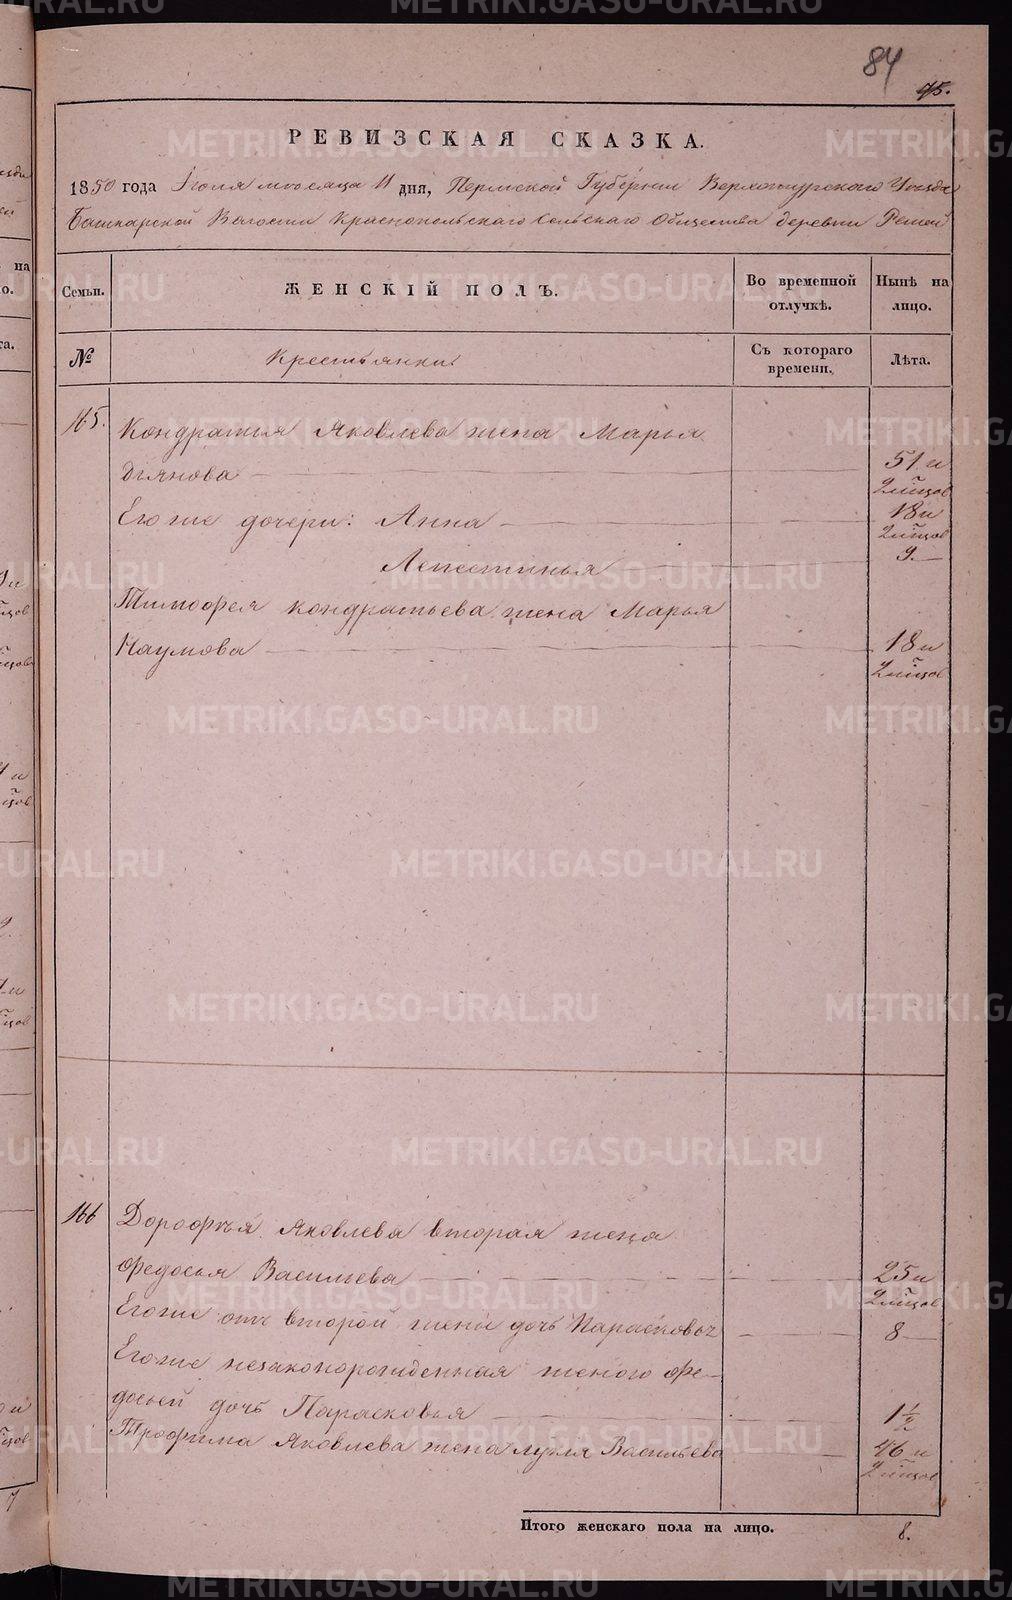 84
75.
РЕВИЗСКАЯ СКАЗКА.
1850 года Іюля мѣсяца 11 дня, Пермской Губерніи Верхотурскаго Уезда
Башкарской Волости Краснопольскаго Сельскаго Общества деревни Решей
Семьи. ЖЕНСКІЙ ПОЛЪ. Во временной отлучкѣ. Нынѣ на лицо.
№ Крестьянки Съ котораго времени. Лѣта.
165. Кондратья Яковлева жена Марья
Діянова 51 и
2 мѣсцов
Его же дочери: Анна 18 и
2 мѣсцов
Апестинья 9
Тимофея кондратьева жена Марья
Наумова 18 и
2 мѣсцов
166 Дорофѣя Яковлева вторая жена
Федосья Васильева 25 и
2 мѣсцов
Его же отъ второй жены дочь Парасковья 8
Его же незаконорожденная женою Фе-
досьей дочь Парасковья 1 1/2
Трофима Яковлева жена Васильева 46 и
2 мѣсцов
Итого женскаго пола на лицо. 8.
METRIKI.GASO-URAL.RU